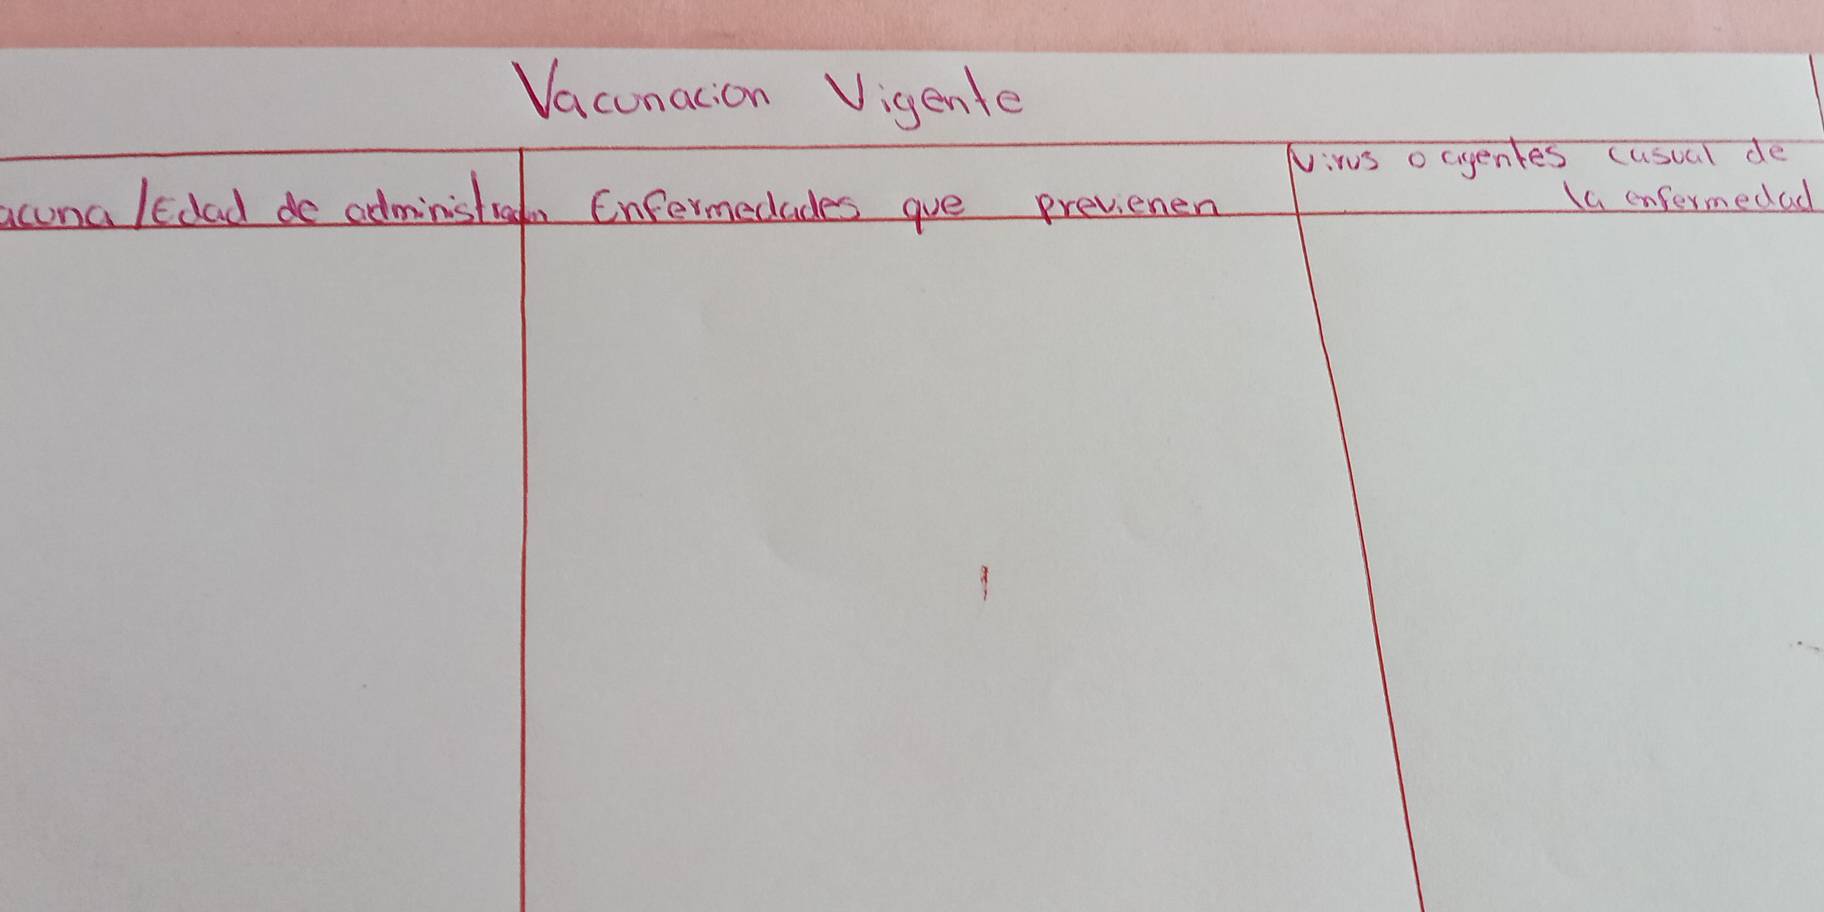 Vacunacion Vigente
acuna / Edad de administracion Enfermedades que previenen
Virus o agentes casual de
la enfermedad